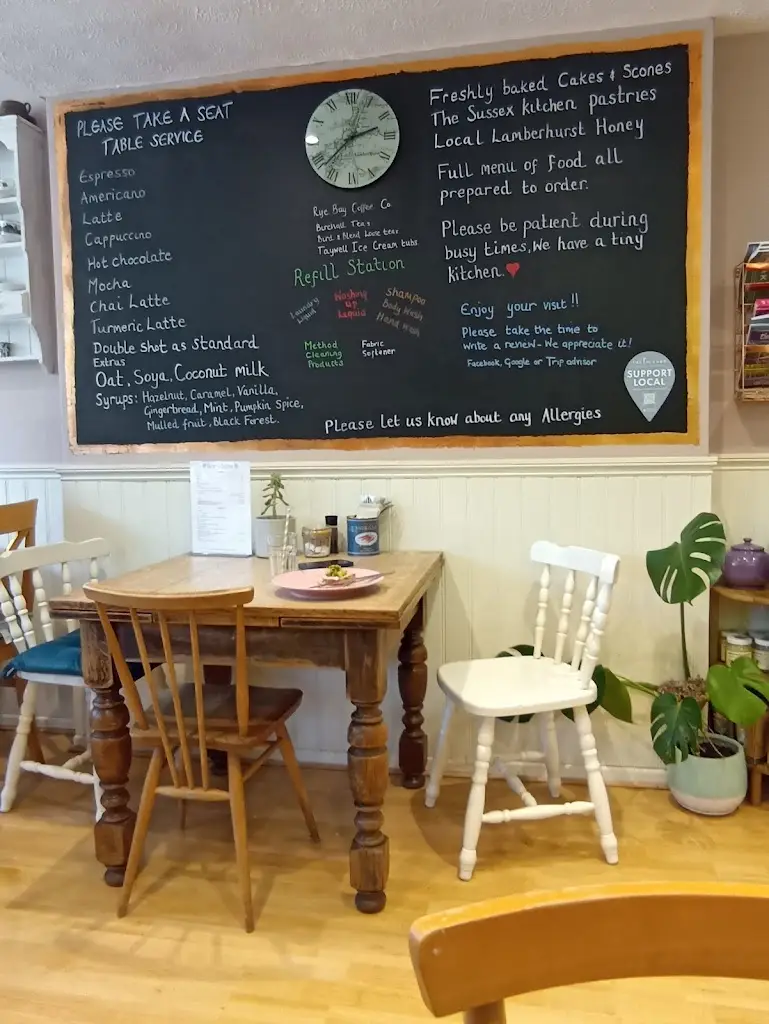 PLEASE TAKE A SEAT
TABLE SERVICE
Espresso
Americano
Latte
Cappuccino
Hot chocolate
Mocha
Chai Latte
Turmeric Latte
Double shot as standard
Extras
Oat, Soya, Coconut milk
Syrups: Hazelnut, Caramel, Vanilla,
Gingerbread, Mint, Pumpkin Spice,
Mulled fruit, Black Forest.
Rye Bay Coffee Co
Burchall Tea's
Bird & Blend Loose teas
Taywell Ice Cream tubs
Refill Station
Laundry
Liquid
Washing
up
Liquid
Shampoo
Body Wash
Hand wash
Method
Cleaning
Products
Fabric
Softener
Freshly baked Cakes & Scones
The Sussex kitchen pastries
Local Lamberhurst Honey
Full menu of food all
prepared to order.
Please be patient during
busy times, We have a tiny
kitchen.
Enjoy your visit!!
Please take the time to
write a review - We appreciate it!
Facebook, Google or Trip advisor
SUPPORT
LOCAL
Please let us know about any Allergies